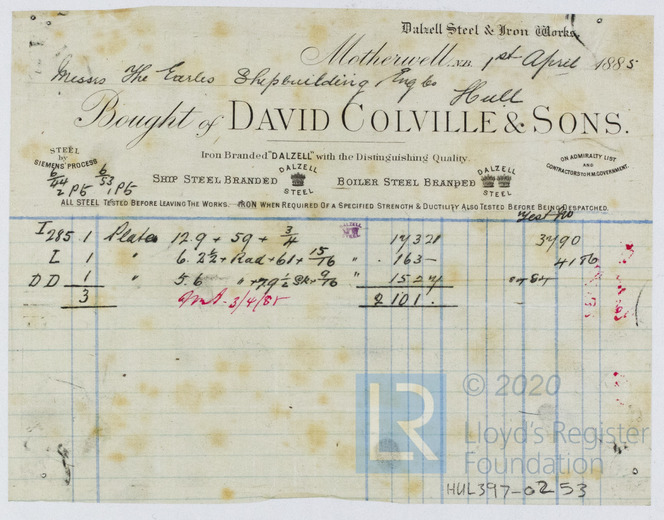 Dalzell Steel & Iron Works.
Motherwell, N.B. 1st April 1885
Messrs The Earles Shipbuilding Eng Co
Hull
Bought of DAVID COLVILLE & SONS.
STEEL by SIEMENS' PROCESS
Iron Branded "DALZELL" with the Distinguishing Quality.
ON ADMIRALTY LIST AND CONTRACTORS TO H.M. GOVERNMENT.
SHIP STEEL BRANDED DALZELL STEEL BOILER STEEL BRANDED DALZELL STEEL
6/44 6/53
2 Pts 1 Pt
ALL STEEL TESTED BEFORE LEAVING THE WORKS. IRON WHEN REQUIRED OF A SPECIFIED STRENGTH & DUCTILITY ALSO TESTED BEFORE BEING DESPATCHED.
Test No
I 285 1 Plates 12.9 + 59 + 3/4 3790
I 1 " 6.2 1/2 + Rad + 61 + 15/16 " 163 -
DD 1 " 5.6 " + 79 1/2 + 9/16 "
3 3/4/85 2 101 -
LR
© 2020
Lloyd's Register
Foundation
HUL397-0253